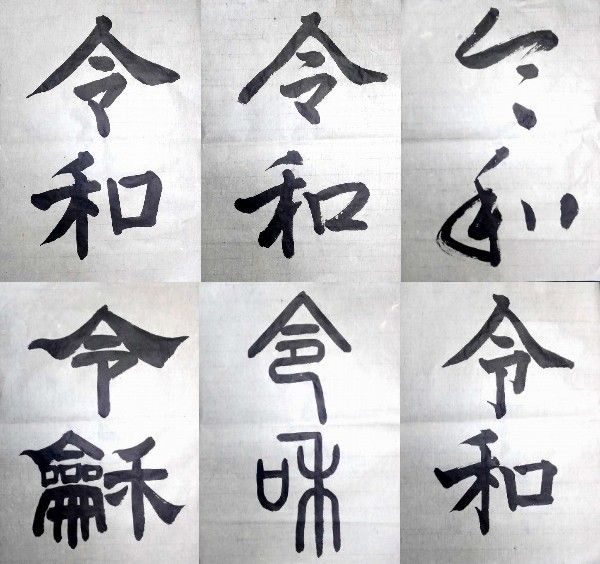 令
和
令
和
令
和
令
龢
令
和
令
和